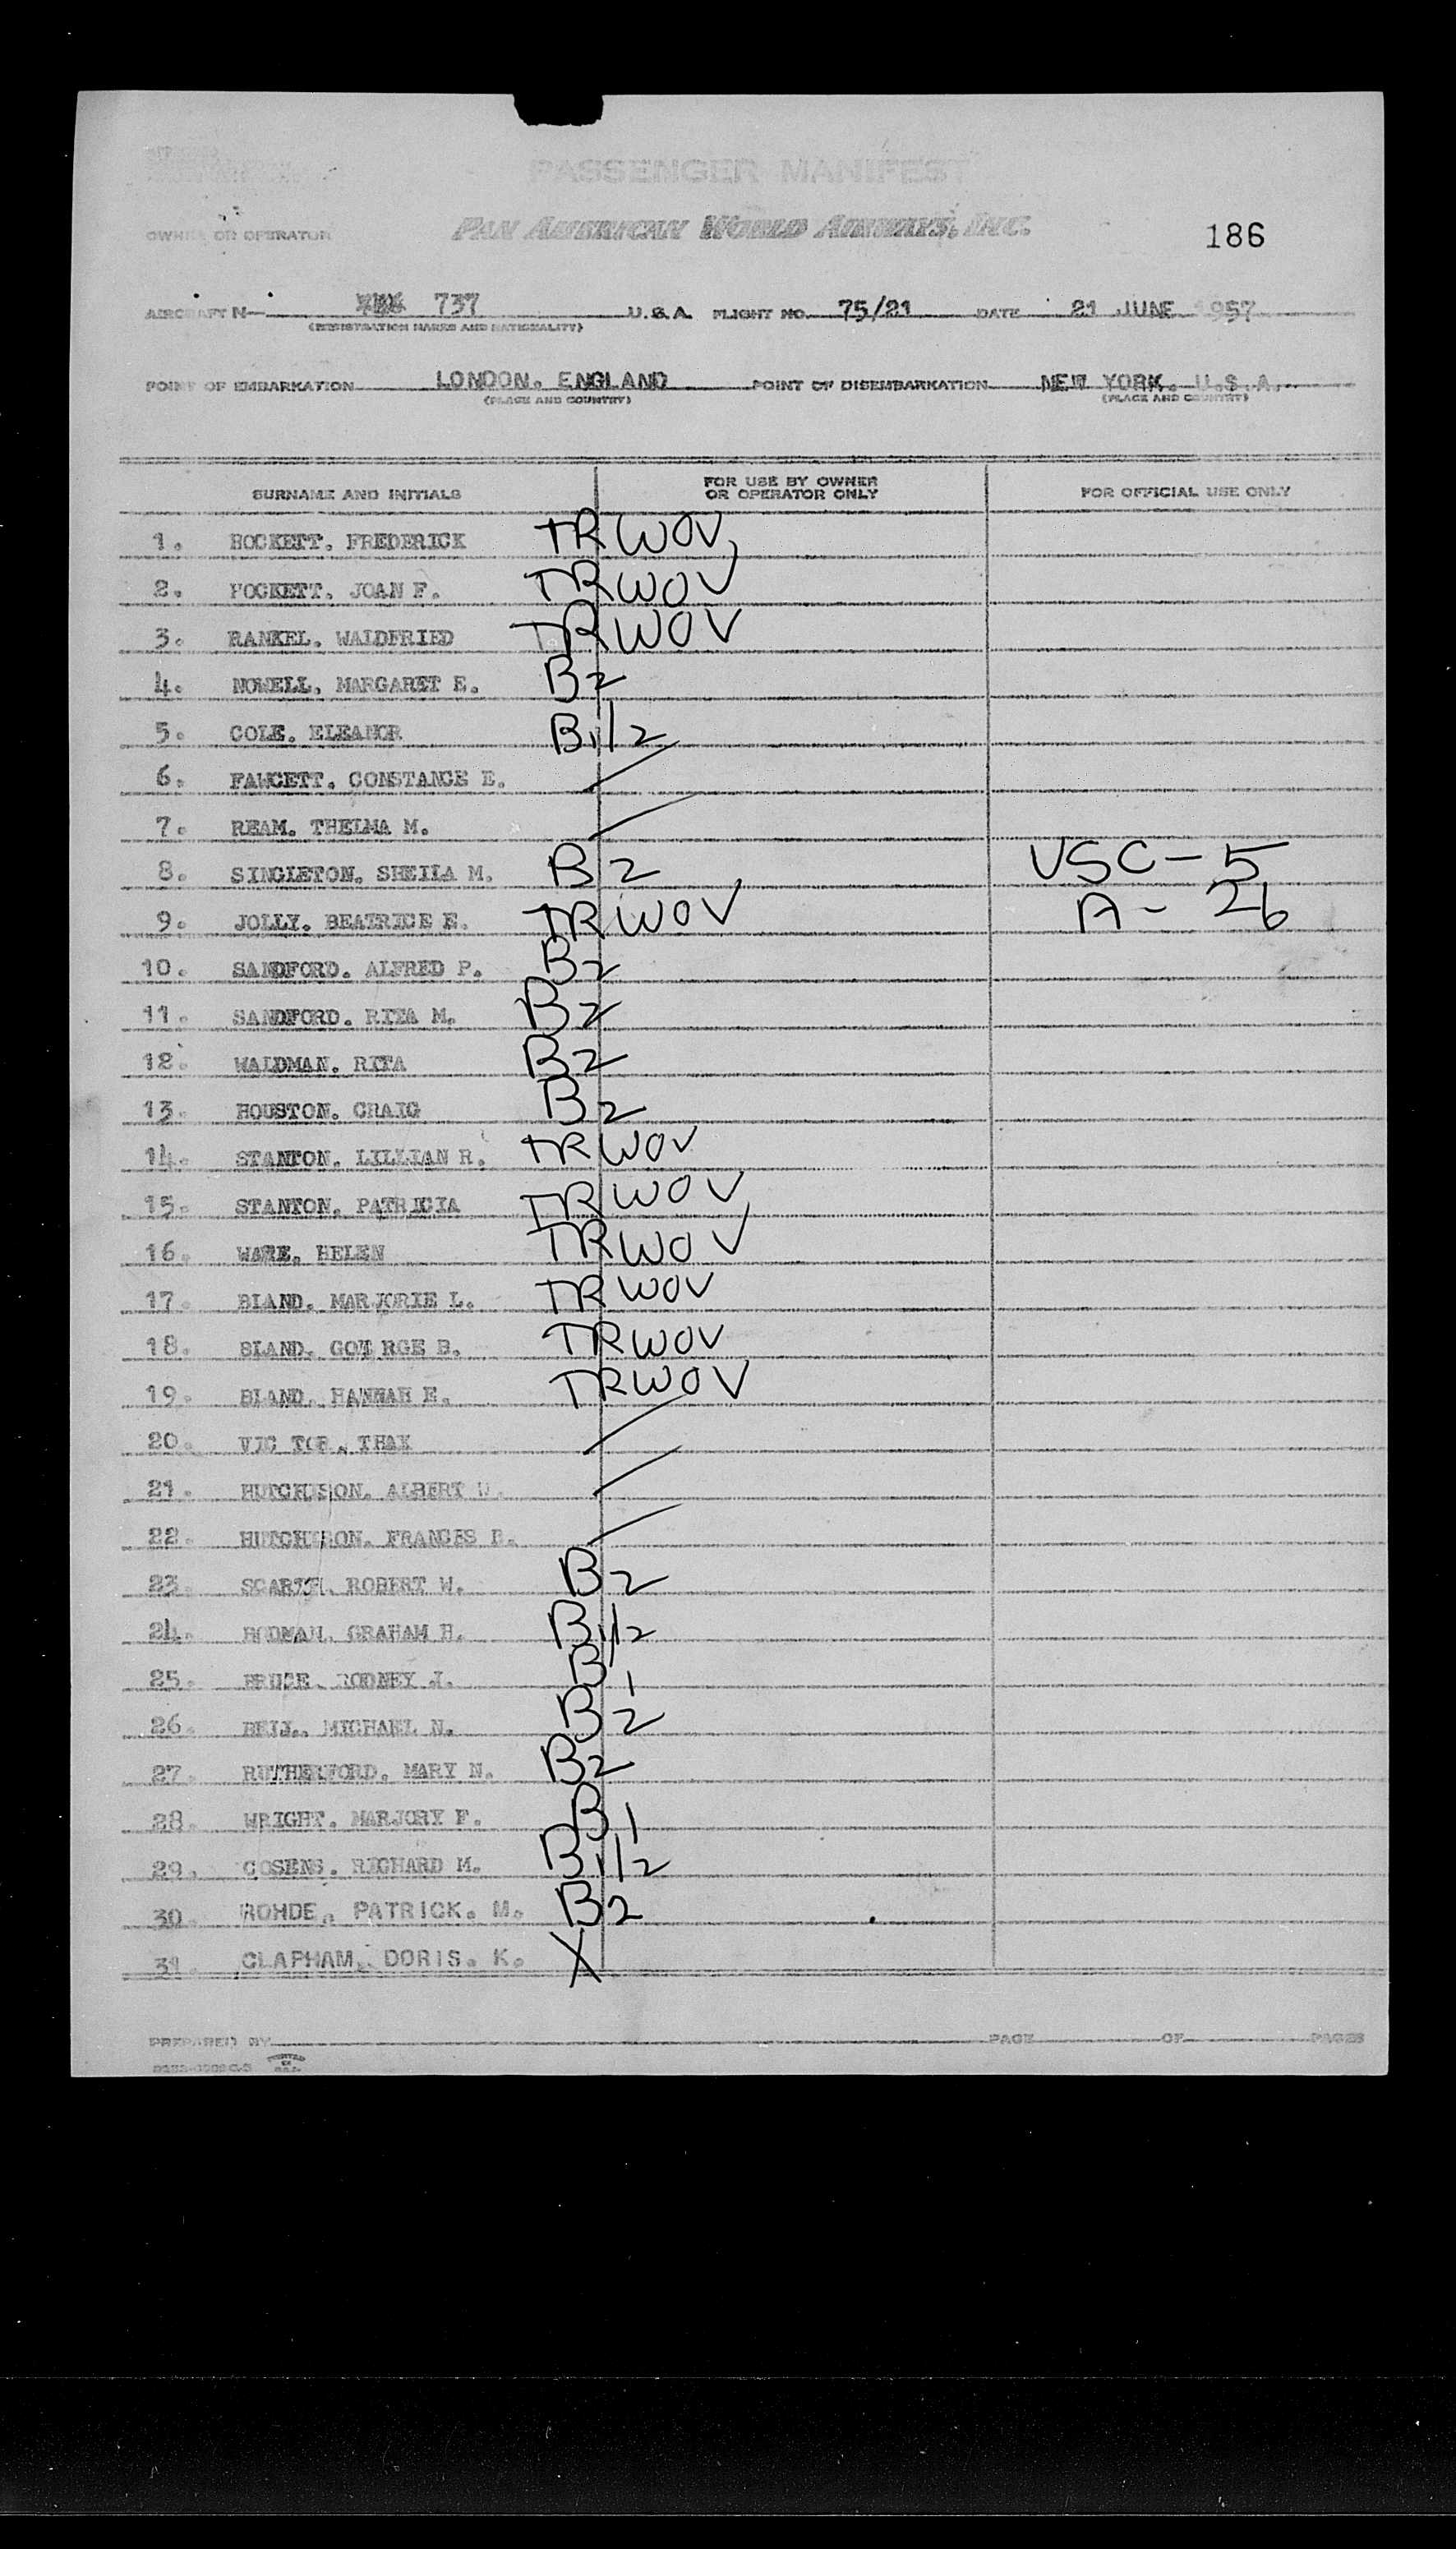 PASSENGER MANIFEST
OWNER OR OPERATOR PAN AMERICAN WORLD AIRWAYS, INC. 186
AIRCRAFT N— 737 U.S.A. FLIGHT NO. 75/21 DATE 21 JUNE 1957
(REGISTRATION MARKS AND NATIONALITY)
POINT OF EMBARKATION LONDON. ENGLAND POINT OF DISEMBARKATION NEW YORK. U.S.A.
(PLACE AND COUNTRY) (PLACE AND COUNTRY)
SURNAME AND INITIALS FOR USE BY OWNER OR OPERATOR ONLY FOR OFFICIAL USE ONLY
1. HOCKETT. FREDERICK TRWOV
2. HOCKETT. JOAN F. TRWOV
3. RANKEL. WALDFRIED TRWOV
4. NOWELL. MARGARET E. B2
5. COLE. ELEANOR B1/2
6. FAWCETT. CONSTANCE E. /
7. REAM. THELMA M. /
8. SINGLETON. SHEILA M. B2 USC-5
9. JOLLY. BEATRICE E. TRWOV A-26
10. SANDFORD. ALFRED P. B2
11. SANDFORD. RITA M. B2
12. WALDMAN. RITA B2
13. HOUSTON. CRAIG B2
14. STANTON. LILLIAN R. TRWOV
15. STANTON. PATRICIA TRWOV
16. WARE. HELEN TRWOV
17. BLAND. MARJORIE L. TRWOV
18. BLAND. RGE B. TRWOV
19. BLAND. HANNAH E. TRWOV
20. VIC TOR. THAX /
21. HUTCHISON. ALBERT W. /
22. HUTCHISON. FRANCES B. /
23. SCARTH. ROBERT W. B2
24. BODMAN. GRAHAM H. B1/2
25. BRUCE. RODNEY J. B1
26. BELL. MICHAEL N. B2
27. RUTHERFORD. MARY N. B2
28. WRIGHT. MARJORY F. B1
29. COSENS. RICHARD M. B1/2
30. ROHDE. PATRICK. M. B2
31. CLAPHAM. DORIS. K. X
PREPARED BY PAGE OF PAGES